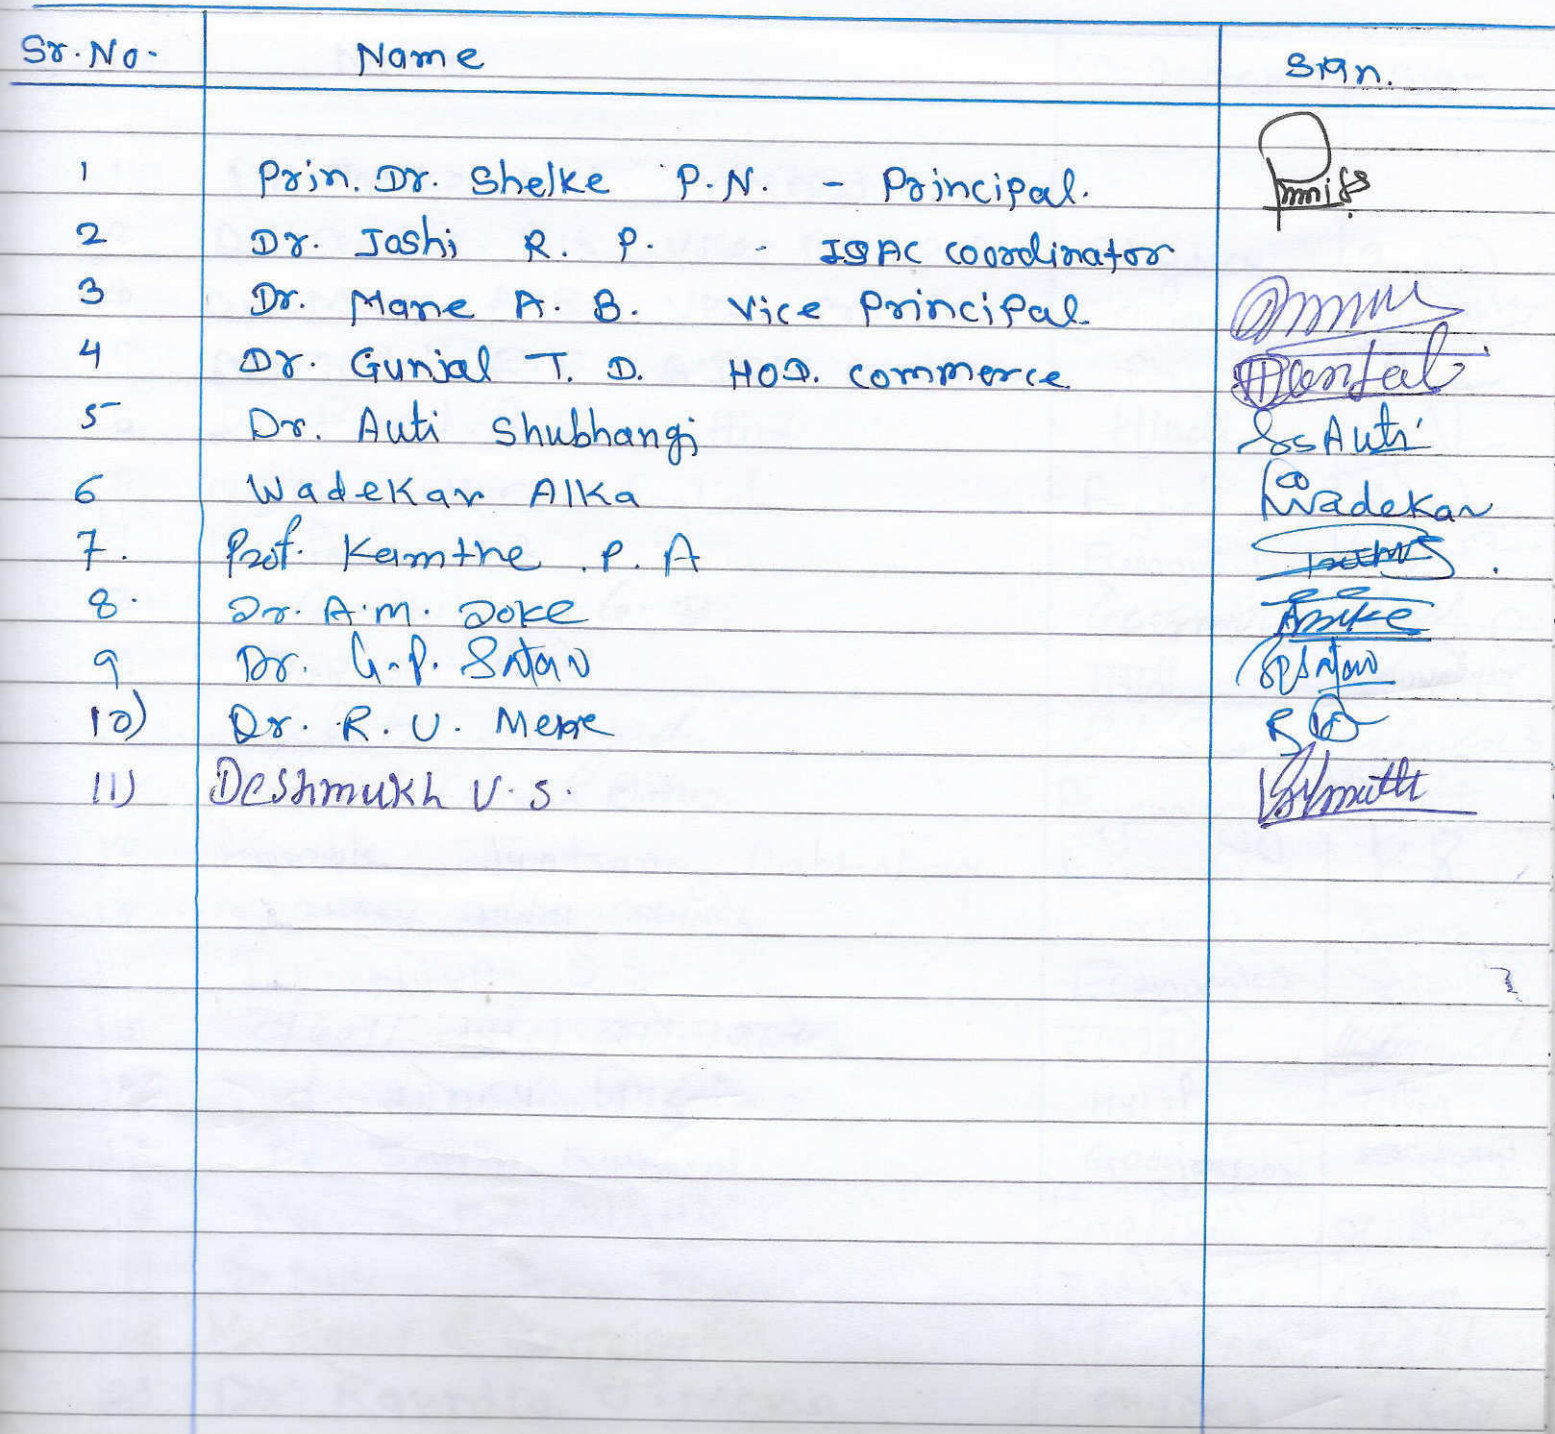 Sr. No. Name Sign.
1 Prin. Dr. Shelke P.N. - Principal.
2 Dr. Joshi R. P. - IQAC Coordinator
3 Dr. Mane A. B. Vice Principal
4 Dr. Gunjal T. D. HOD. Commerce
5 Dr. Auti Shubhangi SSAuti
6 Wadekar Alka Wadekar
7. Prof. Kamthe P. A
8. Dr. A.M. Doke
9 Dr. G.P. Satav GPSatav
10) Dr. R. U. Mere
11) Deshmukh V. S.